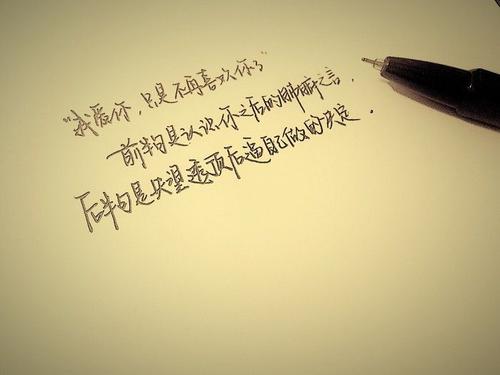 “我爱你，只是不再喜欢你了”
前半句是认识你之后的肺腑之言，
后半句是失望透顶后逼自己做的决定．